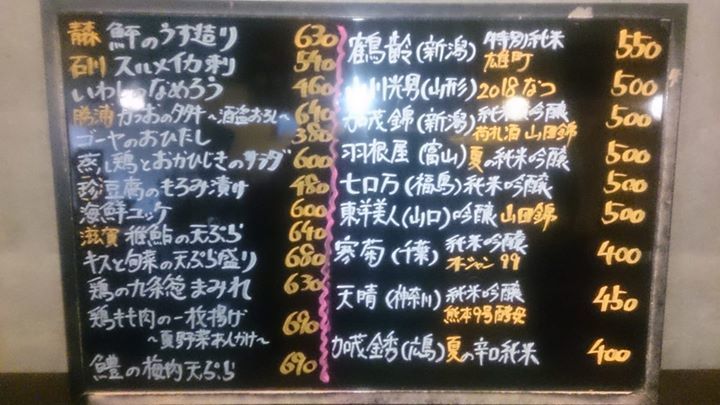 青森 鮃のうす造り 630
石川 スルメイカ刺 540
いわしのなめろう 460
勝浦 かつおのタタキ〜酒盗おろし〜 640
ゴーヤのおひたし 380
蒸し鶏とおかひじきのサラダ 600
珍豆腐のもろみ漬け 480
海鮮ユッケ 600
滋賀 稚鮎の天ぷら 640
キスと旬菜の天ぷら盛り 680
鶏の九条葱まみれ 630
鶏もも肉の一枚揚げ 690
〜夏野菜あんかけ〜
鱧の梅肉天ぷら 690
鶴齢(新潟) 特別純米 550
雄町
山川光男(山形) 2018なつ 500
加茂錦(新潟) 純米大吟醸 500
荷札酒 山田錦
羽根屋(富山) 夏の純米吟醸 500
七ロ万(福島) 純米吟醸 500
東洋美人(山口) 吟醸 山田錦 500
寒菊(千葉) 純米吟醸 400
オーシャン99
天晴(神奈川) 純米吟醸 450
熊本9号酵母
加茂金秀(広島) 夏の辛口純米 400